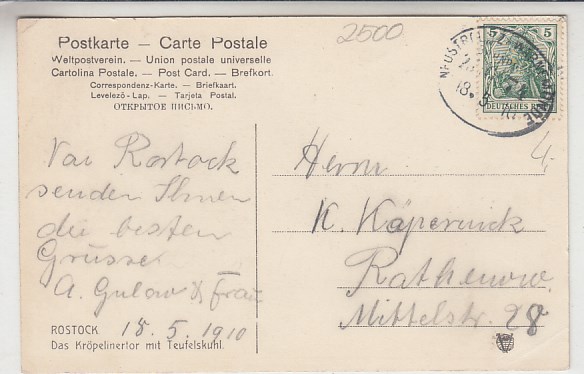 Postkarte — Carte Postale
Weltpostverein. — Union postale universelle
Cartolina Postale. — Post Card. — Brefkort.
Correspondenz-Karte. — Briefkaart.
Levelező-Lap. — Tarjeta Postal.
ОТКРЫТОЕ ПИСЬМО.
2500
5
DEUTSCHES
18.5.
4.
Von Rostock
senden Ihnen
die besten
Grüsse
A. Gulow & Frau
ROSTOCK 18.5.1910
Das Kröpelinertor mit Teufelskuhl.
Herrn
K. Käpernick
Rathenow.
Mittelstr. 28